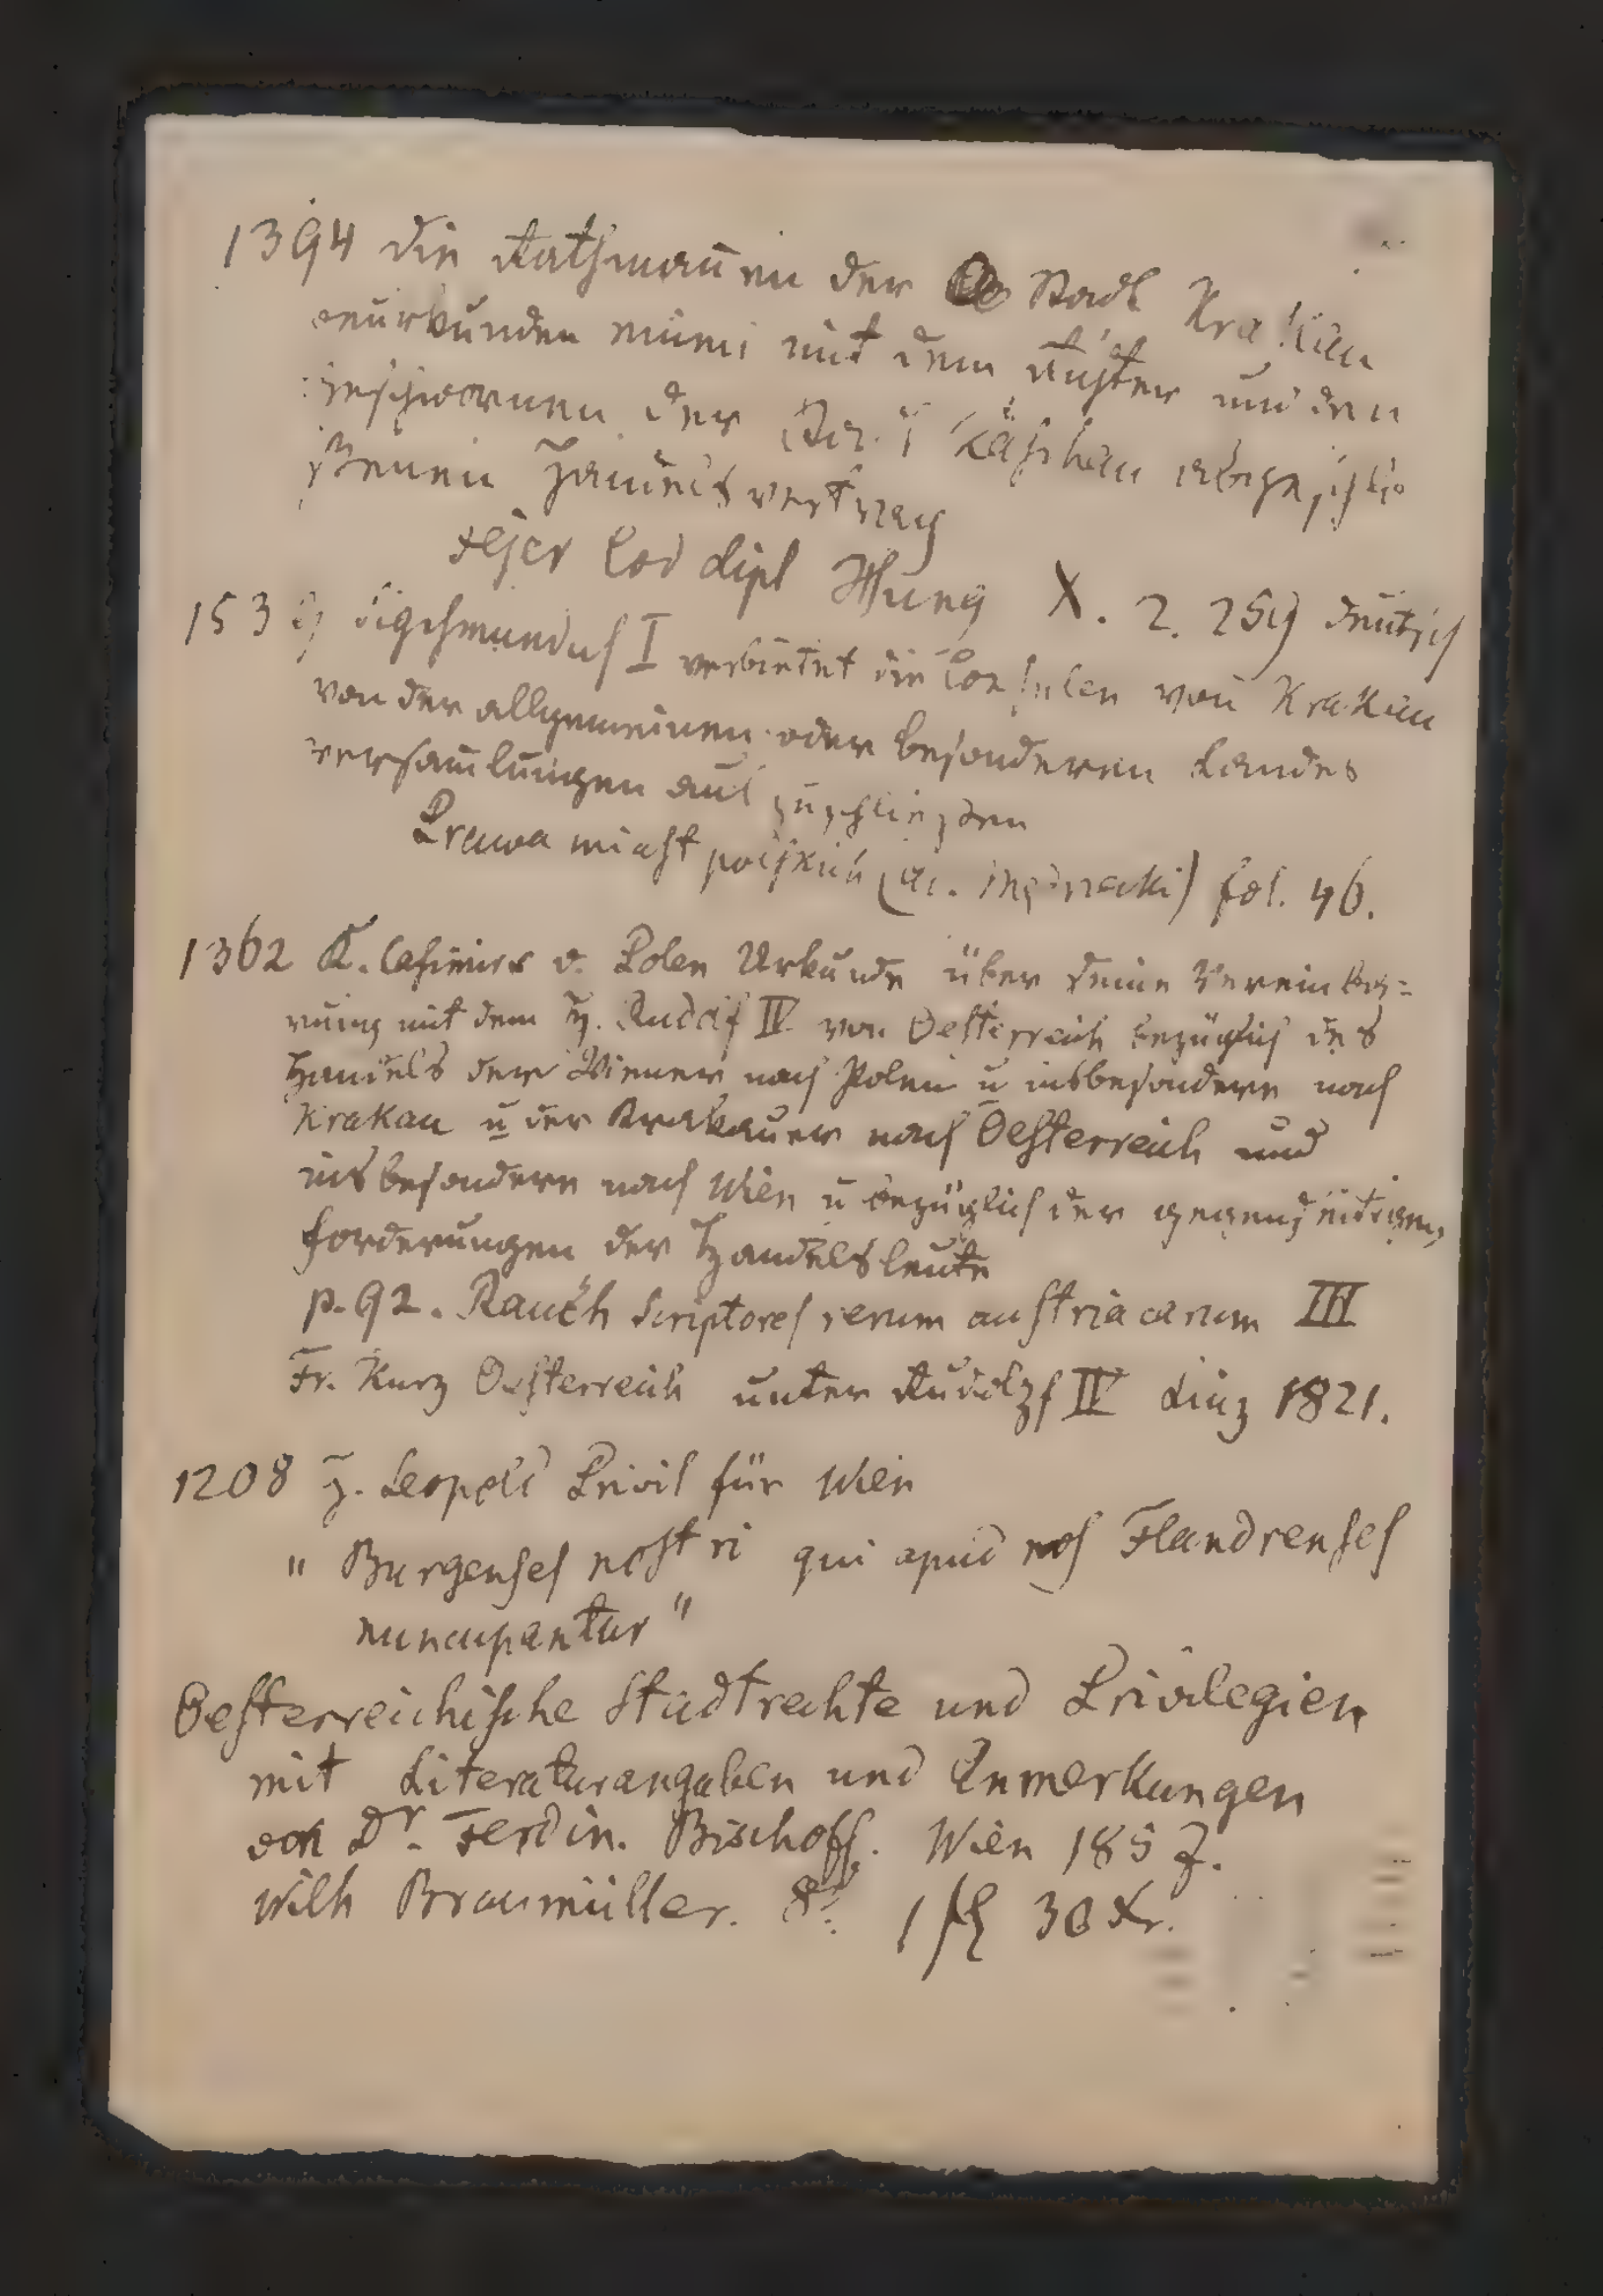 1394 die Rathmañen der Stadt Krakau
beurkunden einen mit dem Richter und den
geschworenen der Stadt Kaschau abgeschlo
ßenen Handelsvertrag
Fejer Cod dipl Hung X. 2. 259 deutsch
1539 Sigismundus I verbietet die Consulen von Krakau
von den allgemeinen oder besonderen Landes
versam̄lungen aus zuschließen
Prawa miast polskich (ar. ) fol. 46.
1362 K. Casimirs v. Polen Urkunde über seine Vereinba=
rung mit dem Hz. Rudolf IV von Oesterreich bezüglich des
Handels der Wiener nach Polen u insbesondere nach
Krakau u der Krakauer nach Oesterreich und
insbesondere nach Wien u bezüglich der gegenseitigen
Forderungen der Handelsleute
p. 92. Rauch Scriptores rerum austriacarum III
Fr. Kurz Oesterreich unter Rudolf IV Linz 1821.
1208 H. Leopold Privil für Wien
" Burgenses nostri qui apud nos Flandrenses
nuncupantur "
Oesterreichische Stadtrechte und Privilegien
mit Literaturangaben und Anmerkungen
von Dr. Ferdin. Bischoff. Wien 1857.
Wilh Braumüller. 8º 1 fl 30 Kr.